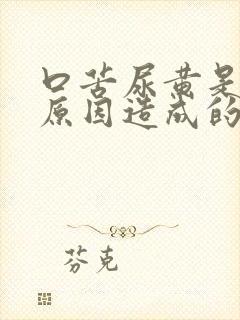 口苦尿黄是
原因造成的
芬克